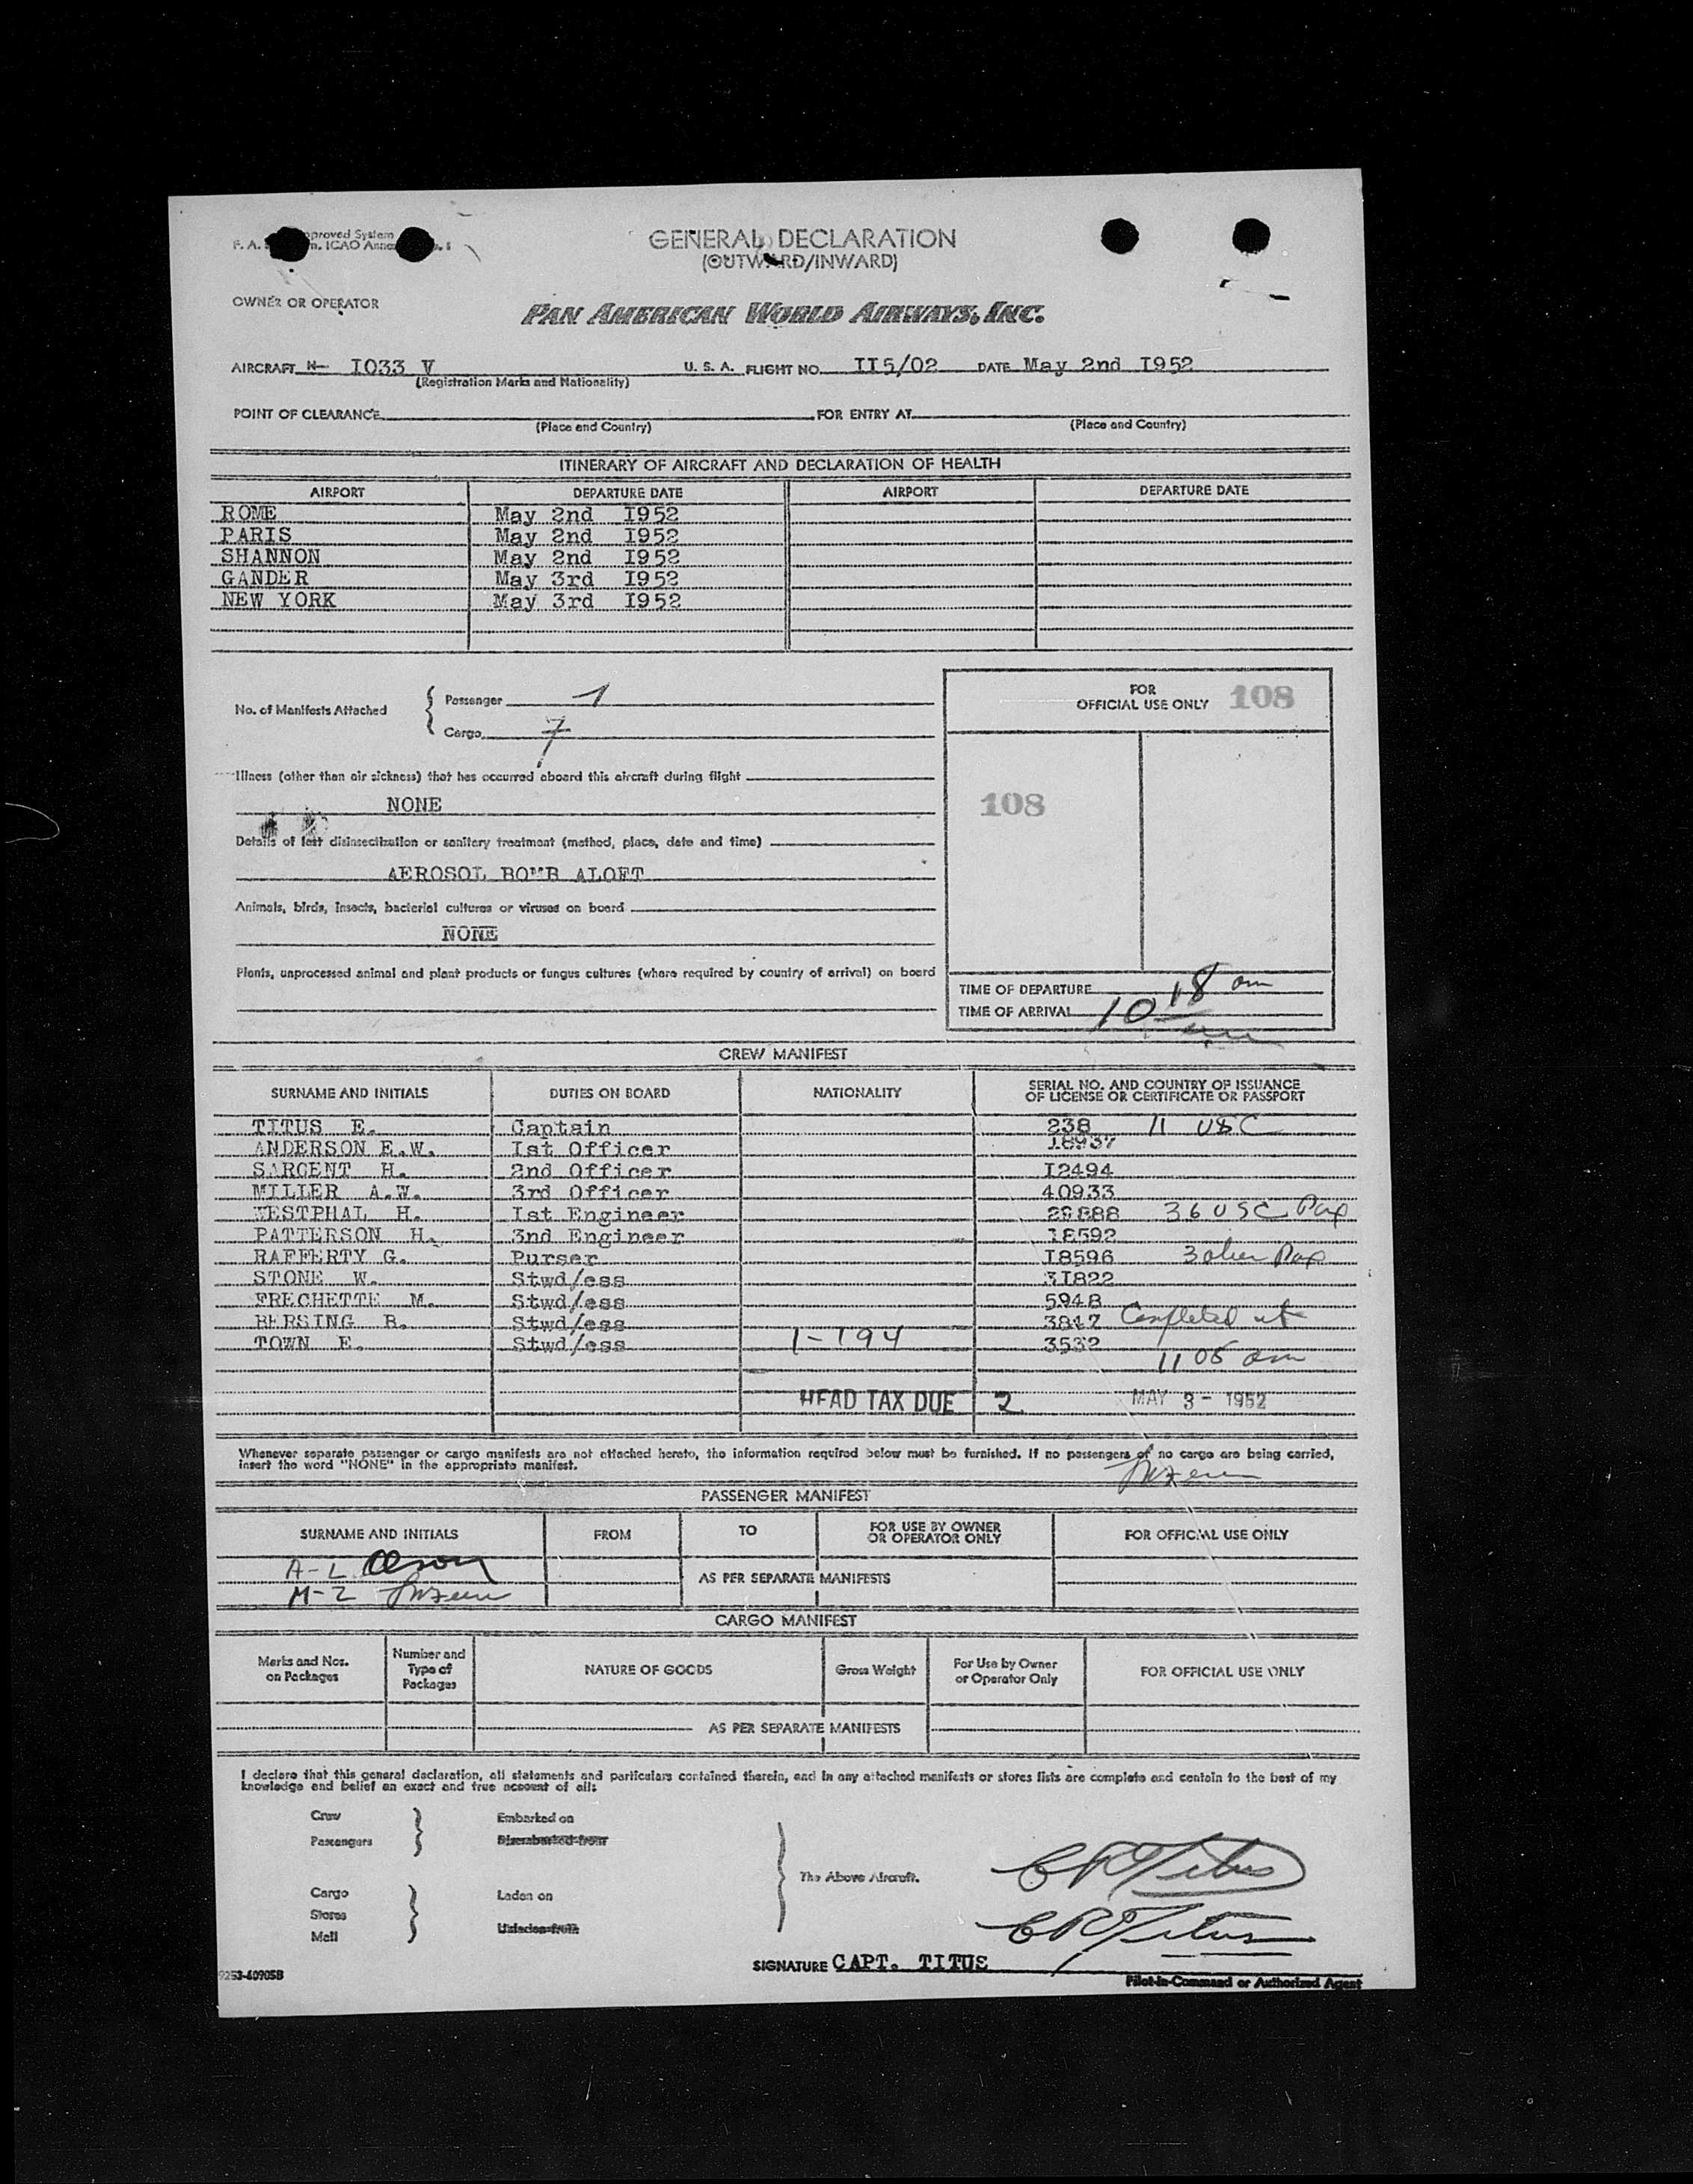 proved System
F. A. n. ICAO Annex
GENERAL DECLARATION
(OUTWARD/INWARD)
OWNER OR OPERATOR
PAN AMERICAN WORLD AIRWAYS, INC.
AIRCRAFT N- I033 V U. S. A. FLIGHT NO. II5/02 DATE May 2nd I952
(Registration Marks and Nationality)
POINT OF CLEARANCE FOR ENTRY AT
(Place and Country) (Place and Country)
ITINERARY OF AIRCRAFT AND DECLARATION OF HEALTH
AIRPORT DEPARTURE DATE AIRPORT DEPARTURE DATE
ROME May 2nd I952
PARIS May 2nd I952
SHANNON May 2nd I952
GANDER May 3rd I952
NEW YORK May 3rd I952
No. of Manifests Attached
Passenger 1
Cargo 7
FOR
OFFICIAL USE ONLY 108
108
Illness (other than air sickness) that has occurred aboard this aircraft during flight
NONE
Details of last disinsectization or sanitary treatment (method, place, date and time)
AEROSOL BOMB ALOFT
Animals, birds, insects, bacterial cultures or viruses on board
NONE
Plants, unprocessed animal and plant products or fungus cultures (where required by country of arrival) on board
TIME OF DEPARTURE
TIME OF ARRIVAL 10 18 am
CREW MANIFEST
SURNAME AND INITIALS DUTIES ON BOARD NATIONALITY SERIAL NO. AND COUNTRY OF ISSUANCE
OF LICENSE OR CERTIFICATE OR PASSPORT
TITUS E. Captain 238 11 USC
ANDERSON E.W. Ist Officer 18937
SARGENT H. 2nd Officer I2494
MILLER A.W. 3rd Officer 40933
WESTPHAL H. Ist Engineer 29888 36 USC Pax
PATTERSON H. 3nd Engineer 18592
RAFFERTY G. Purser I8596 3 alien Pax
STONE W. Stwd/ess 3I822
FRECHETTE M. Stwd/ess 5948
BERSING B. Stwd/ess 3847 Completed at
TOWN E. Stwd/ess 1-194 3532
11 05 am
HEAD TAX DUE 2 MAY 3 - 1952
Whenever separate passenger or cargo manifests are not attached hereto, the information required below must be furnished. If no passengers or no cargo are being carried,
insert the word "NONE" in the appropriate manifest.
PASSENGER MANIFEST
SURNAME AND INITIALS FROM TO FOR USE BY OWNER
OR OPERATOR ONLY FOR OFFICIAL USE ONLY
A-L Olson
M-Z
AS PER SEPARATE MANIFESTS
CARGO MANIFEST
Marks and Nos.
on Packages Number and
Type of
Packages NATURE OF GOODS Gross Weight For Use by Owner
or Operator Only FOR OFFICIAL USE ONLY
AS PER SEPARATE MANIFESTS
I declare that this general declaration, all statements and particulars contained therein, and in any attached manifests or stores lists are complete and contain to the best of my
knowledge and belief an exact and true account of all:
Crew Embarked on
Passengers Disembarked from
The Above Aircraft. CR Titus
Cargo Laden on
Stores
Mail Unladen from
CR Titus
SIGNATURE CAPT. TITUS
9253-40905B Pilot-in-Command or Authorized Agent